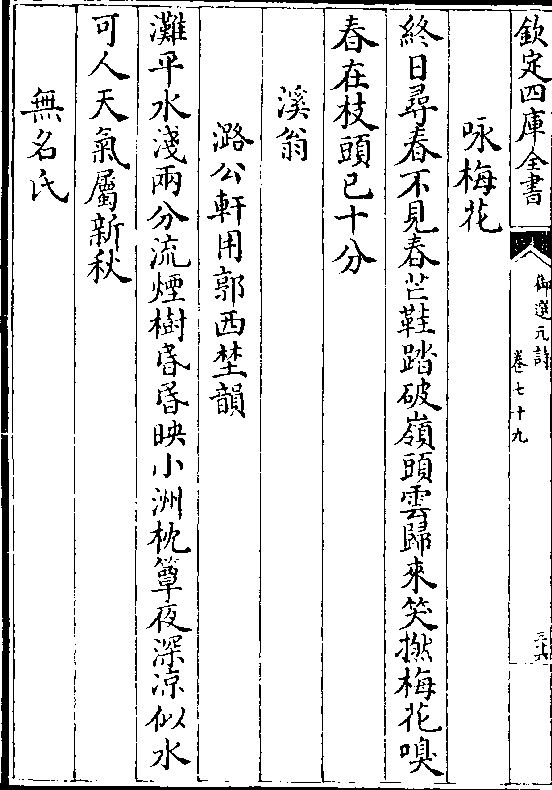 欽定四庫全書
御選元詩
卷七十九
三十六
咏梅花
終日尋春不見春芒鞋踏破嶺頭雲歸來笑撚梅花嗅
春在枝頭已十分
溪翁
潞公軒用郭西埜韻
灘平水淺兩分流煙樹昏昏映小洲枕簟夜深涼似水
可人天氣屬新秋
無名氏